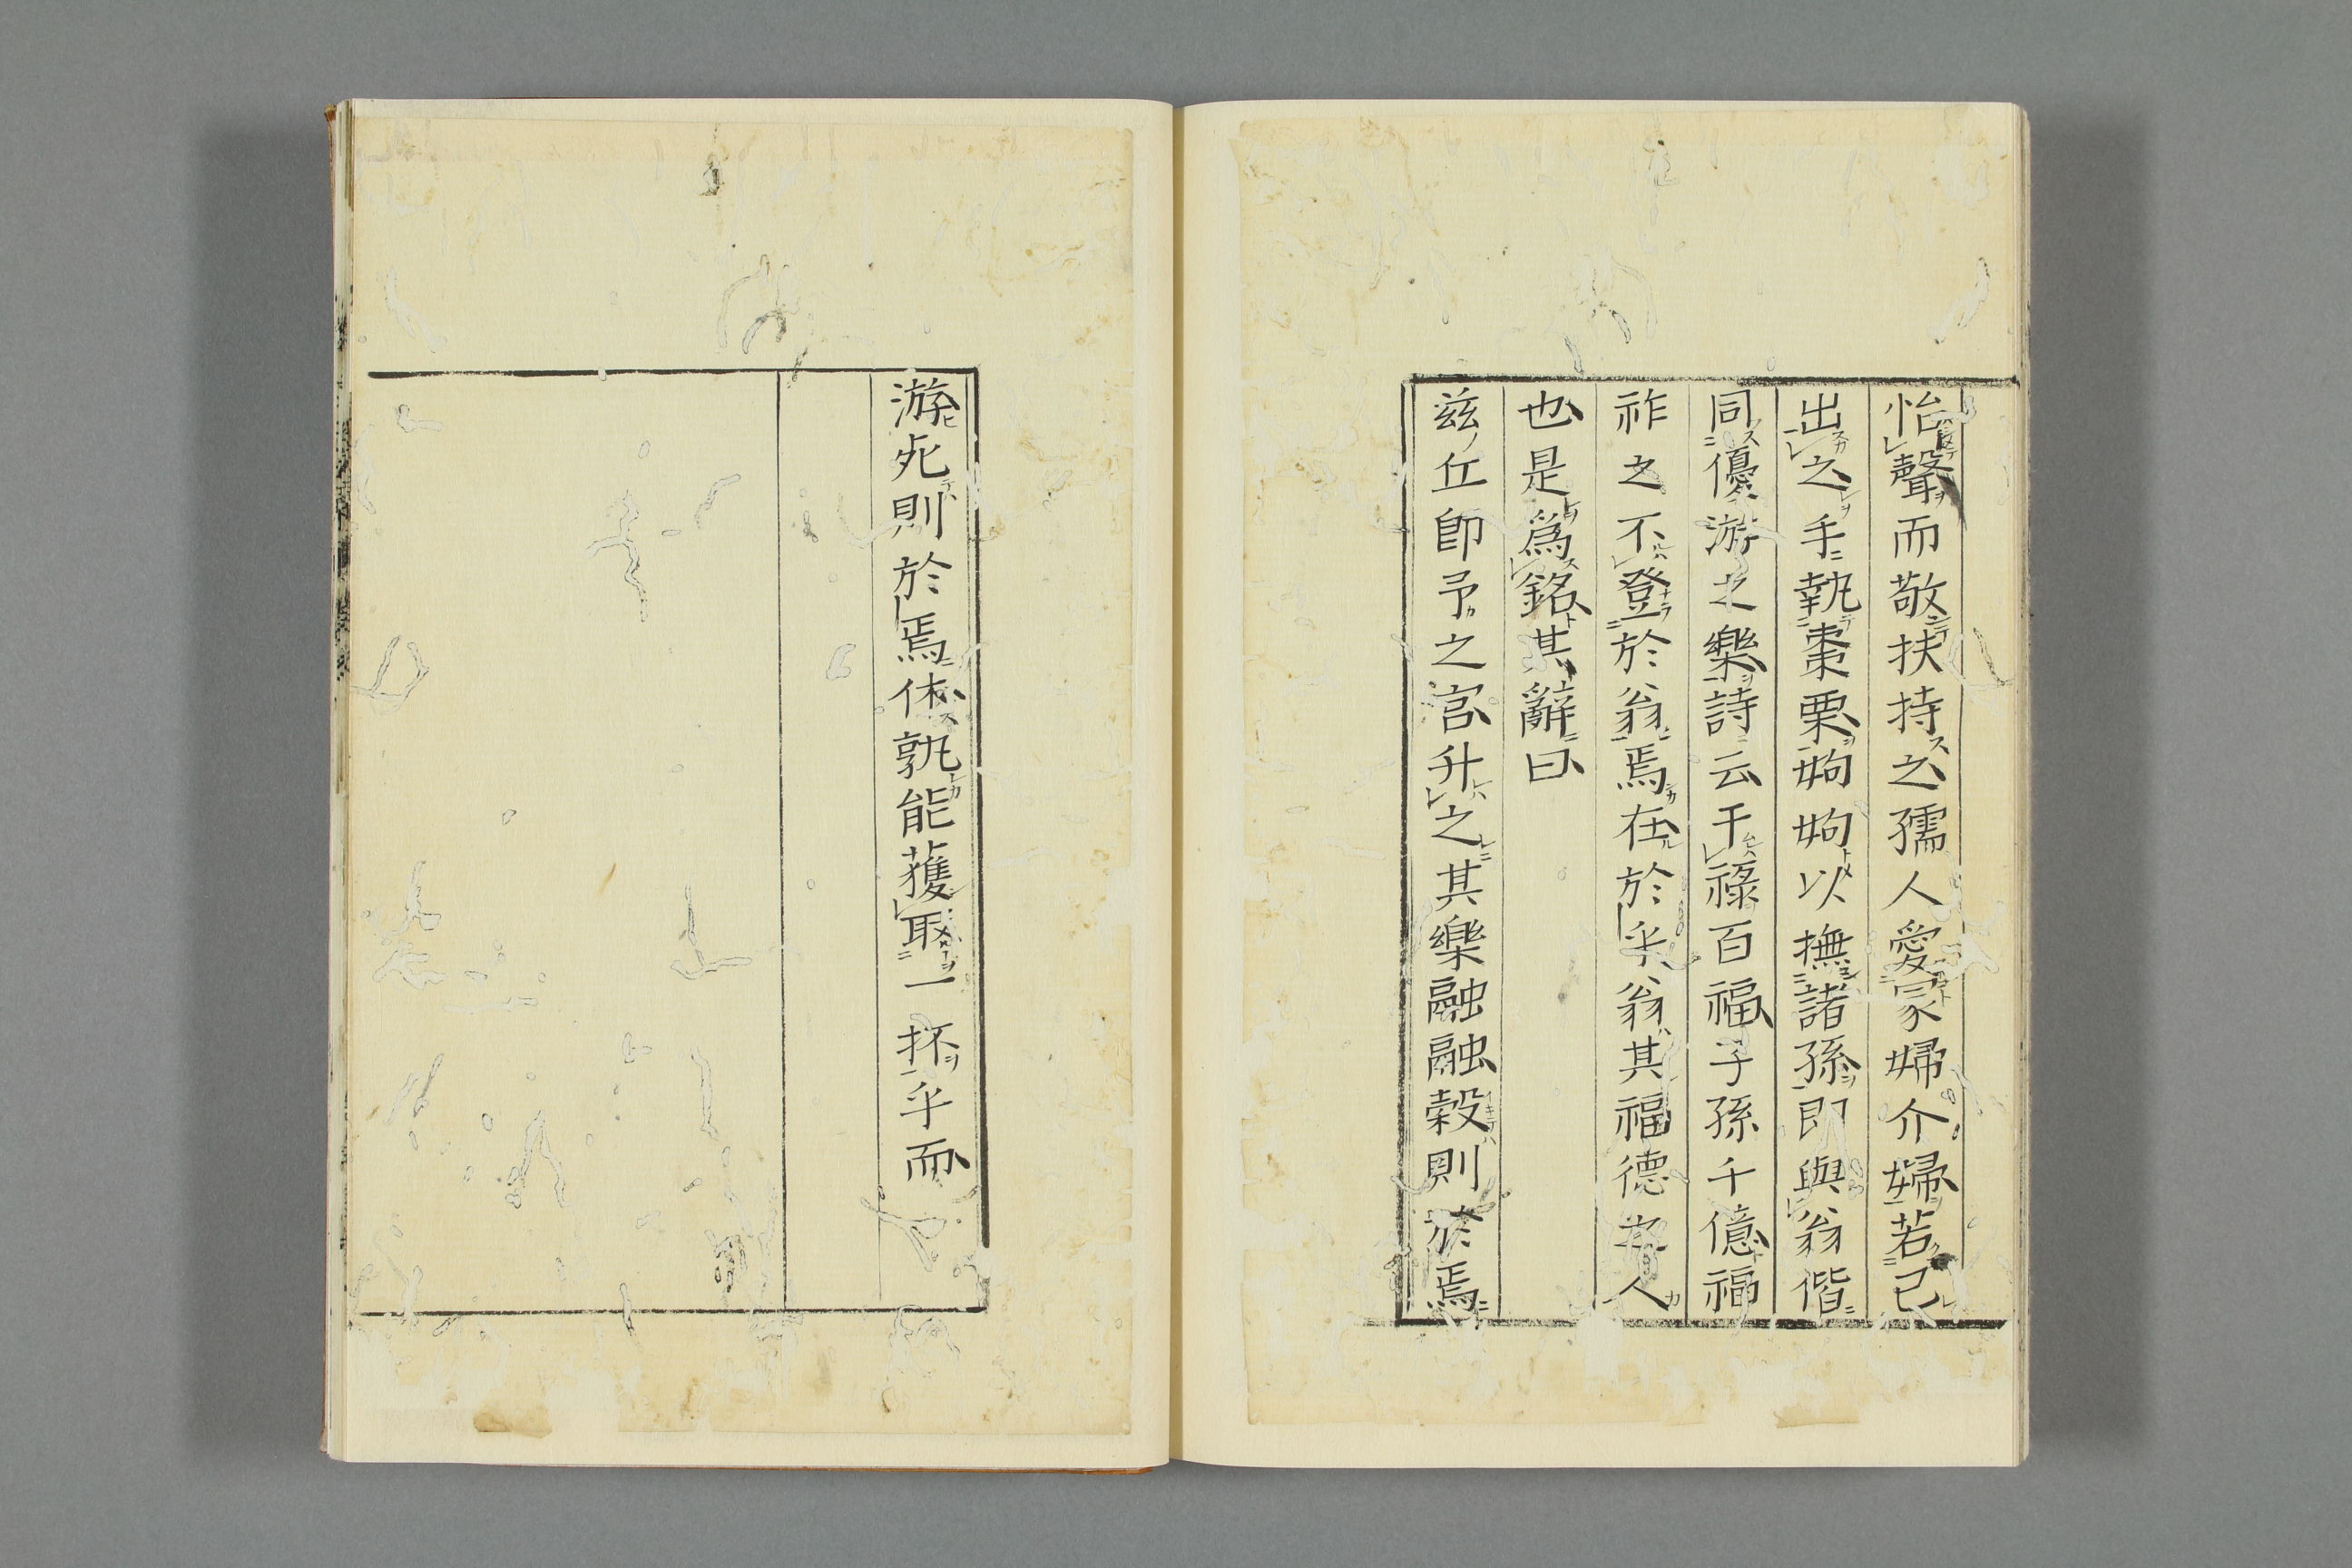 怡聲而敬扶持之孺人愛冢婦介婦若己
出之手執棗栗姁姁以撫諸孫即與翁偕
同優游之樂詩云干祿百福子孫千億福
祚之不登於翁焉在於乎翁其福德人
也是爲銘其辭曰
茲丘卽予之宮升之其樂融融穀則於焉
游死則於焉休孰能蒦聚一抔乎而